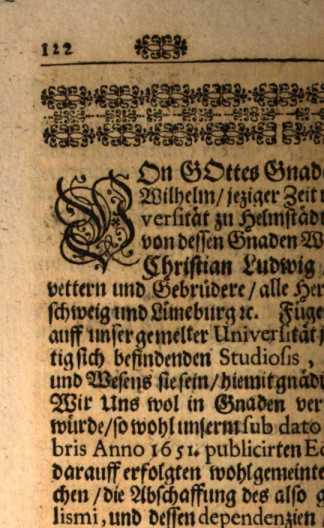 122
VOn GOttes Gnad
Wilhelm/ jeziger Zeit
versität zu Helmstäd
von dessen Gnaden
Christian Ludwig
vettern und Gebrüdere / alle Her
schweig und Lüneburg ꝛc. Füge
auff unser gemelter Universität
tig sich befindenden Studiosis,
und Wesens sie sein/ hiemit gnädi
Wir Uns wol in Gnaden ver
würde/ so wohl unserm sub dato
bris Anno 1651. publicirten Ed
darauff erfolgten wohlgemeinte
chen / die Abschaffung des also g
lismi, und dessen dependenzien